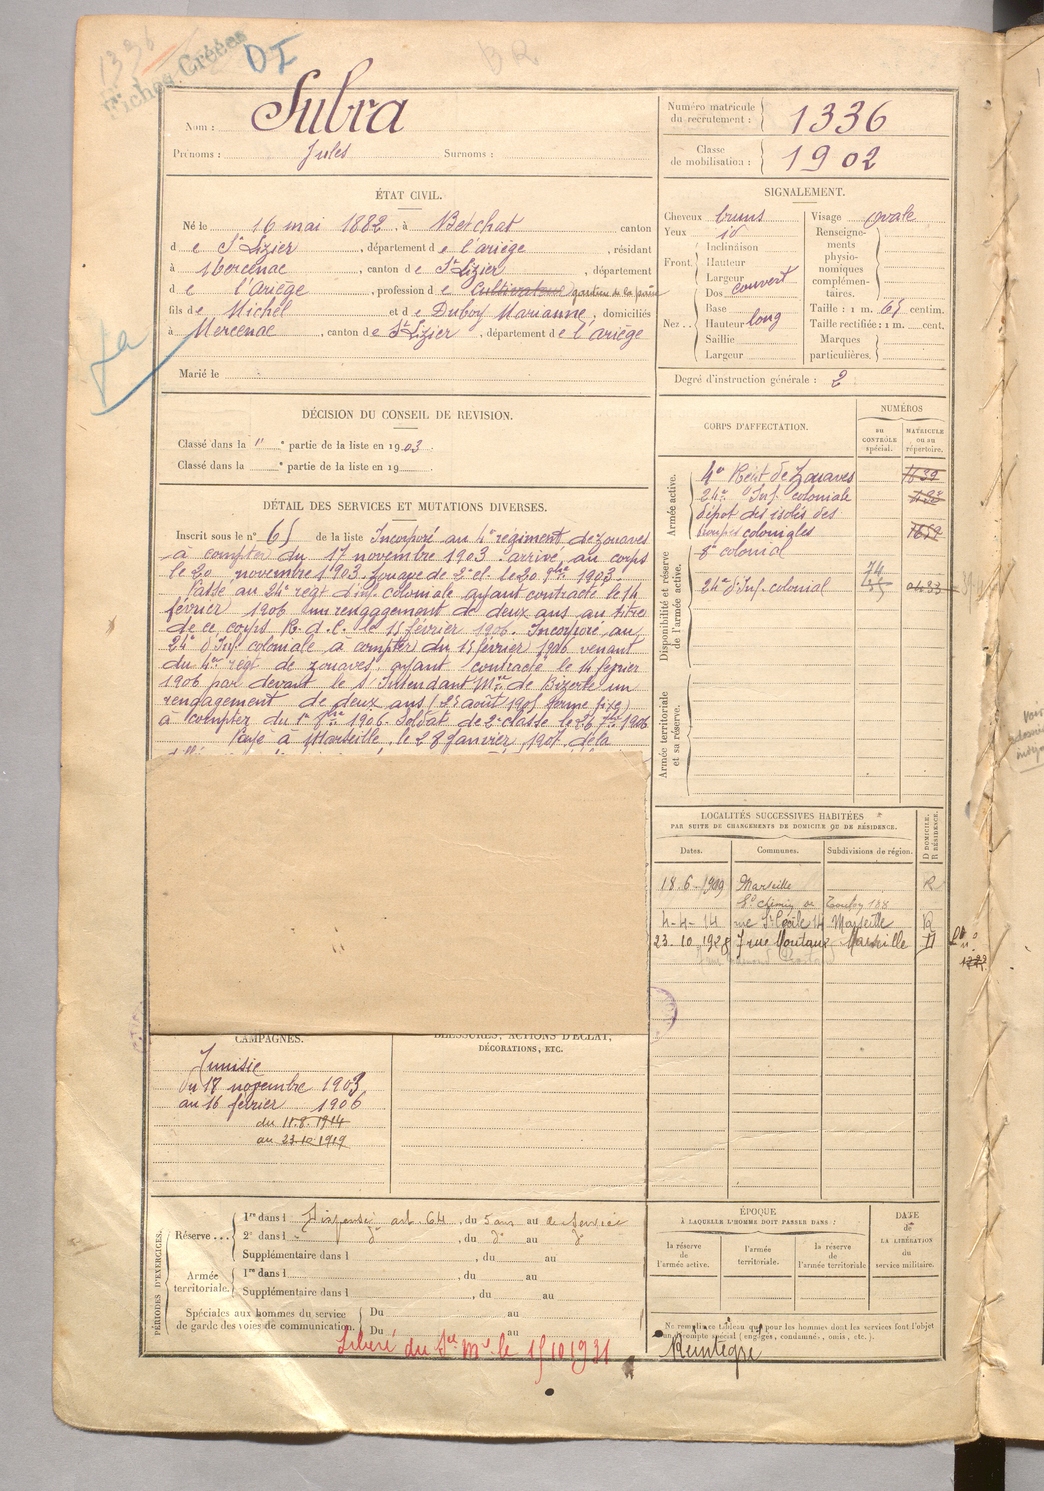 1336
Fiches Créées
DI
BR
Nom : Subra
Prénoms : Jules Surnoms :
Numéro matricule du recrutement : 1336
Classe de mobilisation : 1902
ÉTAT CIVIL.
Né le 16 mai 1882, à Betchat canton
d e St Lizier, département d e l'ariège, résidant
à Mercenac, canton d e St Lizier, département
d e l'Ariège, profession d e Cultivateur gardien de la paix
fils d e Michel et d e Duboy Marianne, domiciliés
à Mercenac, canton d e St Lizier, département d e l'ariège
Marié le
SIGNALEMENT.
Cheveux bruns
Yeux id
Front. Inclinaison
Hauteur
Largeur
Dos couvert
Nez .. Base
Hauteur long
Saillie
Largeur
Visage ovale
Renseignements physionomiques complémentaires.
Taille : 1 m. 65 centim.
Taille rectifiée : 1 m. cent.
Marques particulières.
Degré d'instruction générale : 2
DÉCISION DU CONSEIL DE REVISION.
Classé dans la " e partie de la liste en 1903.
Classé dans la e partie de la liste en 19
CORPS D'AFFECTATION.
NUMÉROS
au CONTRÔLE spécial.
MATRICULE ou au répertoire.
Armée active.
4e Reg't de Zouaves 1639
24e d'Inf. coloniale
dépôt des isolés des
troupes coloniales
8e colonial
Disponibilité et réserve de l'armée active.
24e d'Inf. colonial
Armée territoriale et sa réserve.
DÉTAIL DES SERVICES ET MUTATIONS DIVERSES.
Inscrit sous le n° 65 de la liste Incorporé au 4e régiment de zouaves
à compter du 17 novembre 1903 arrivé au corps
le 20 novembre 1903. Zouave de 2e cl. le 20 9bre 1903.
Passé au 24e regt d'inf. coloniale ayant contracté le 14
février 1906 un rengagement de deux ans au titre
de ce corps R. d. C. le 15 février 1906. Incorporé au
24e d'Inf. coloniale à compter du 15 février 1906 venant
du 4e régt de zouaves, ayant contracté le 14 février
1906 par devant le s/ Intendant Mre de Bizerte un
rengagement de deux ans (Dt août 1905 forme fixe)
à compter du 1er 9bre 1906. Soldat de 2e classe le 26 7bre 1906
Rayé à Marseille, le 28 janvier 1907 de la
LOCALITÉS SUCCESSIVES HABITÉES
PAR SUITE DE CHANGEMENTS DE DOMICILE OU DE RÉSIDENCE.
Dates. Communes. Subdivisions de région. D DOMICILE. R RÉSIDENCE.
18.6.1909 Marseille R
Bd chemin de Toulon 138
4-4-14 rue Ste Cécile 14 Marseille R
23.10.1928 7 rue Moutaux Marseille D
CAMPAGNES.
Tunisie
du 17 novembre 1903
au 16 février 1906
du 11.8.1914
au 23.10.1919
BLESSURES, ACTIONS D'ÉCLAT,
DÉCORATIONS, ETC.
PÉRIODES D'EXERCICES.
Réserve ... 1re dans l Dispensé art. 64, du 5 ans au de Service
2e dans l " do, du do au do
Supplémentaire dans l , du au
Armée territoriale. 1re dans l , du au
Supplémentaire dans l , du au
Spéciales aux hommes du service de garde des voies de communication. Du au
Du au
Libéré du Sce Mre le 15 10 1931
ÉPOQUE
À LAQUELLE L'HOMME DOIT PASSER DANS :
la réserve de l'armée active.
l'armée territoriale.
la réserve de l'armée territoriale
DATE de LA LIBÉRATION du service militaire.
Ne remplir ce tableau que pour les hommes dont les services font l'objet
d'un compte spécial (engagés, condamné, omis, etc.).
Réintégré